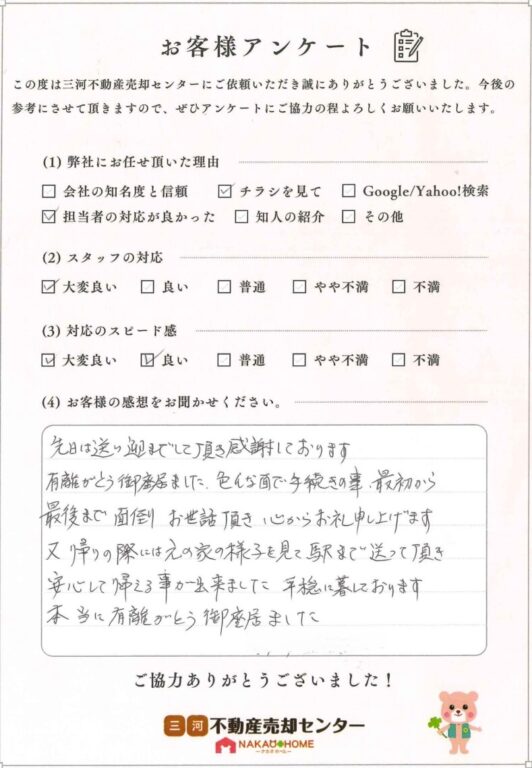 お客様アンケート
この度は三河不動産売却センターにご依頼いただき誠にありがとうございました。今後の
参考にさせて頂きますので、ぜひアンケートにご協力の程よろしくお願いいたします。
(1) 弊社にお任せ頂いた理由
☐ 会社の知名度と信頼 ☑ チラシを見て ☐ Google/Yahoo!検索
☑ 担当者の対応が良かった ☐ 知人の紹介 ☐ その他
(2) スタッフの対応
☑ 大変良い ☐ 良い ☐ 普通 ☐ やや不満 ☐ 不満
(3) 対応のスピード感
☑ 大変良い ☑ 良い ☐ 普通 ☐ やや不満 ☐ 不満
(4) お客様の感想をお聞かせください。
先日は送り迎までして頂き感謝しております
有離がとう御座居ました、色んな面で手続きの事、最初から
最後まで面倒りお世話頂き心からお礼申し上げます
又帰りの際には元の家の様子を見て駅まで送って頂き
安心して帰える事が出来ました 手穏に暮しております
本当に有離がとう御座居ました
ご協力ありがとうございました！
三河 不動産売却センター
NAKAU HOME
ナカウホーム